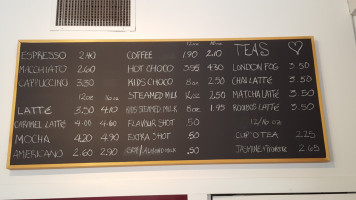 12oz 16oz
ESPRESSO 2.40 COFFEE 1.90 2.10 TEAS
MACCHIATO 2.60 HOT CHOCO 3.95 4.30 LONDON FOG 3.50
CAPPUCCINO 3.30 KIDS CHOCO 8oz 2.50 CHAI LATTE 3.50
12oz 16oz STEAMED MILK 2.50 MATCHA LATTE 3.50
LATTÉ 3.50 4.40 KIDS STEAMED MILK 8oz 1.95 ROOIBOS LATTE 3.50
CARAMEL LATTE 4.00 FLAVOUR SHOT .50 12/16 oz
MOCHA 4.20 4.90 EXTRA SHOT .50 CUP O TEA 2.25
AMERICANO 2.60 2.90 SOY/ALMOND MILK .50 JASMINE 2.65